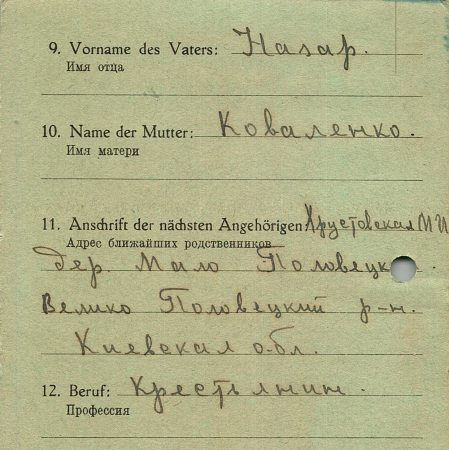 9. Vorname des Vaters: Назар.
Имя отца
10. Name der Mutter: Коваленко.
Имя матери
11. Anschrift der nächsten Angehörigen: Хрустовская М И
Адрес ближайших родственников
дер. Мало Половецк
Велико Половецкий р-н.
Киевская обл.
12. Beruf: Крестьянин.
Профессия